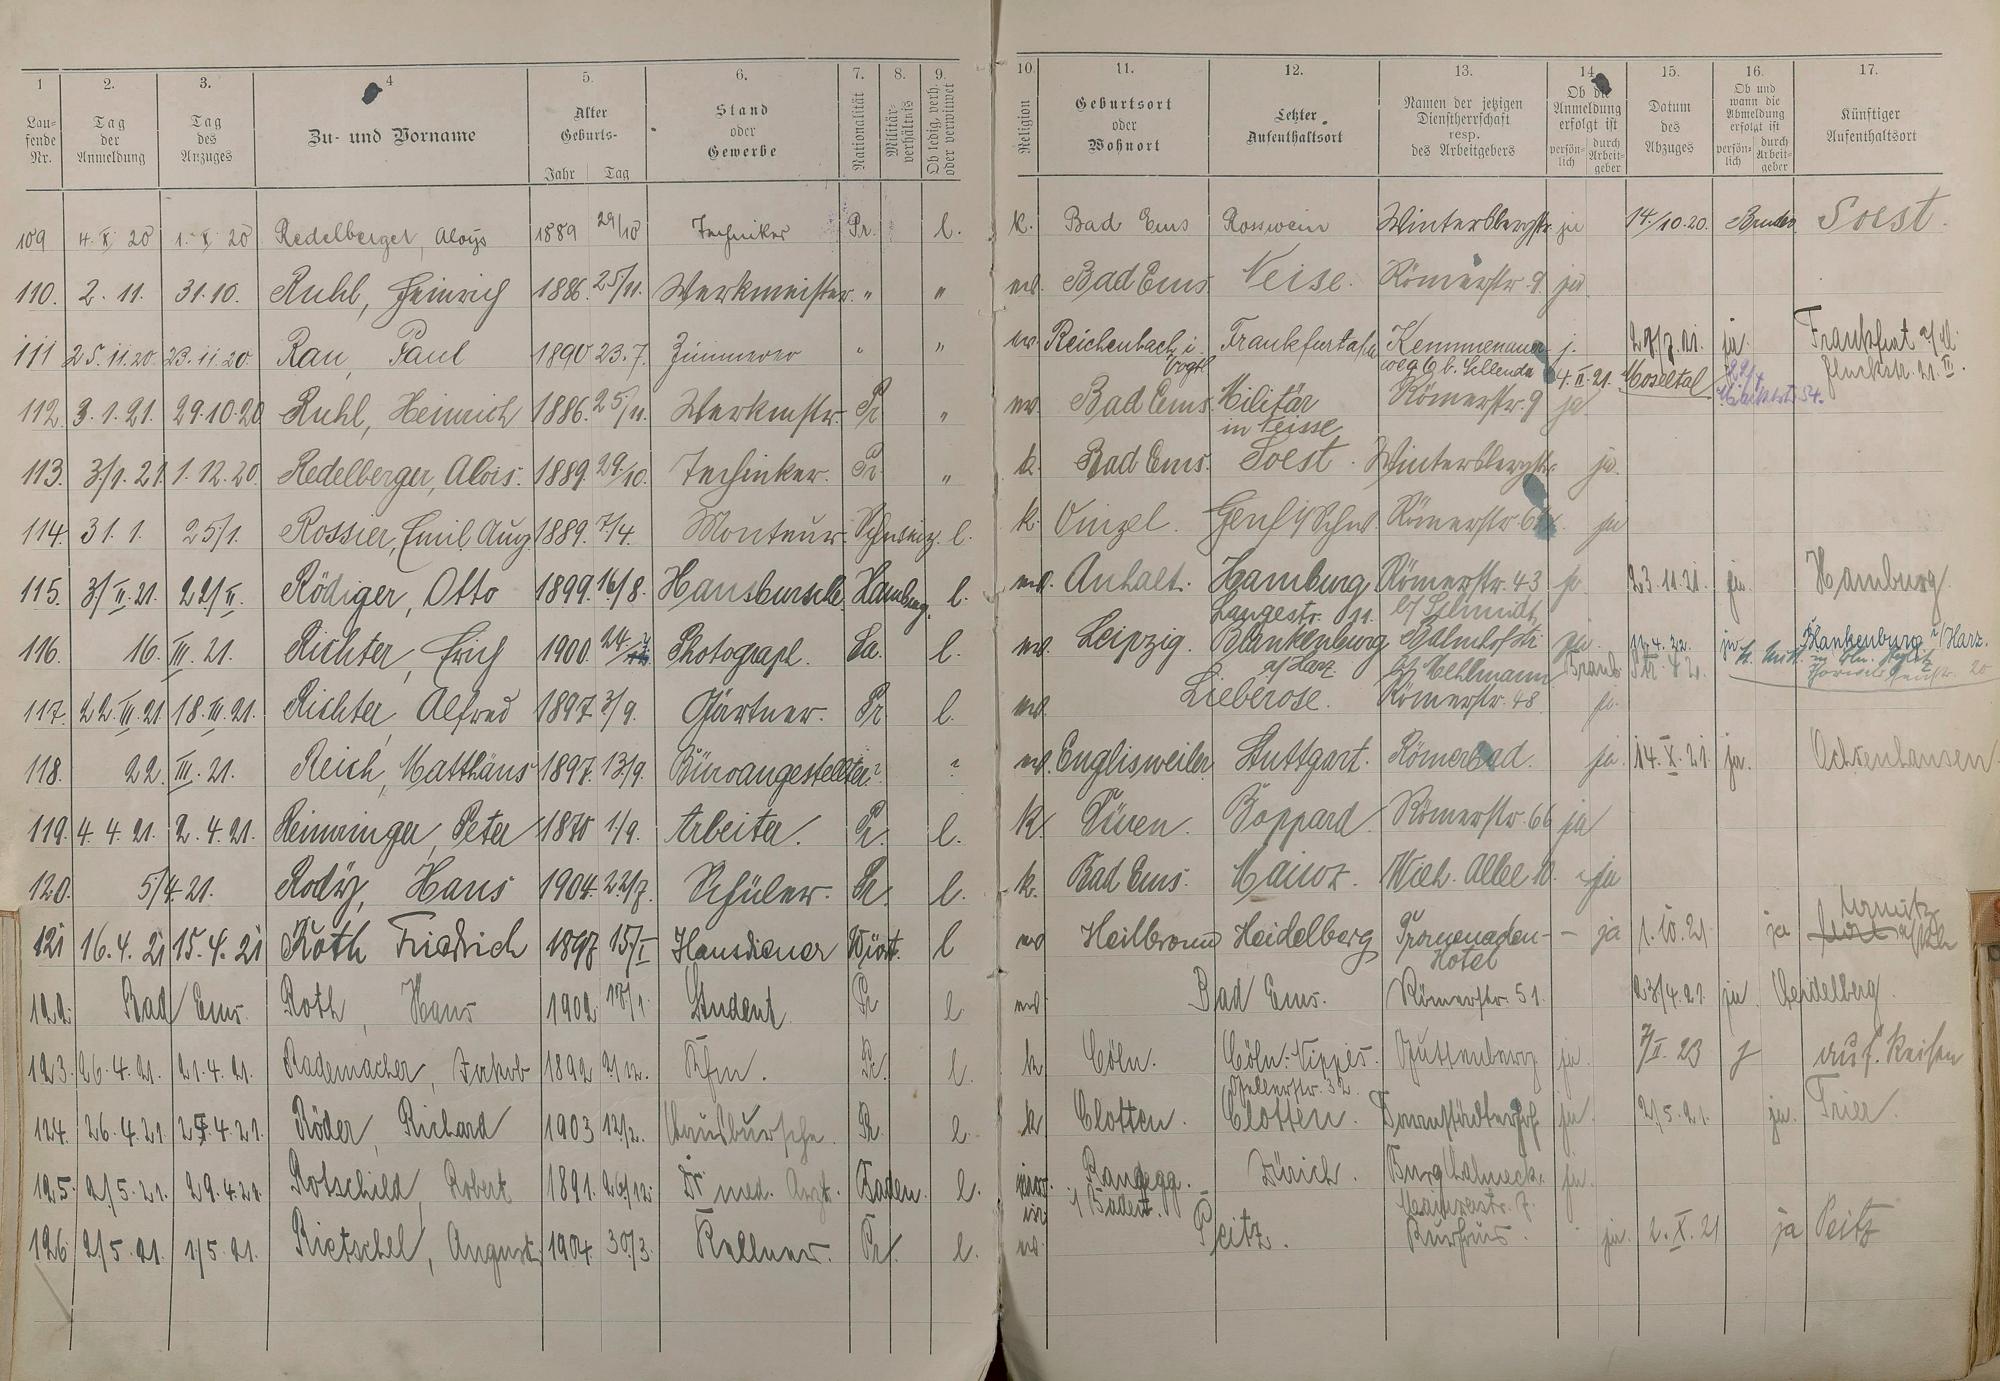 1 2. 3. 4 5. 6. 7. 8. 9. 10. 11. 12. 13. 14. 15. 16. 17.
Lau-
fende
Nr.
Tag
der
Anmeldung
Tag
des
Anzuges
Zu- und Vorname
Alter
Geburts-
Jahr Tag
Stand
oder
Gewerbe
Nationalität
Militär-
verhältnis
Ob ledig, verh.
oder verwitwet
Religion
Geburtsort
oder
Wohnort
Letzter
Aufenthaltsort
Namen der jetzigen
Dienstherrschaft
resp.
des Arbeitgebers
Ob die
Anmeldung
erfolgt ist
persön-
lich
durch
Arbeit-
geber
Datum
des
Abzuges
Ob und
wann die
Abmeldung
erfolgt ist
persön-
lich
durch
Arbeit-
geber
Künftiger
Aufenthaltsort
109 4. X. 20 1. X. 20 Redelberger, Aloys 1889 29/10 Techniker Pr. l. k. Bad Ems Rosswein Wintersbergstr. ja 14/10.20. Bruder Soest.
110. 2. 11. 31.10. Ruhl, Heinrich 1886. 25/11. Werkmeister " " ev. Bad Ems. Neise. Römerstr. 9 ja.
111 25.11.20. 23.11.20. Rau, Paul 1890 23.7. " " ev. Reichenbach i. Frankfurt a/M Kemmenauer j. ja Frankfurt a/M.
Vogtl. weg 4. II. 21. Moseltal
112. 3.1.21. 29.10.20 Ruhl, Heinrich 1886. 25/11. Werkmstr. Pr " ev. Bad Ems. Militär Römerstr. 9 ja.
in Neisse
113. 3/1. 21. 1.12.20. Redelberger, Alois. 1889. 29./10. Techniker. Pr. " k. Bad Ems. Soest. Wintersbergstr. ja.
114. 31. 1. 25/1. Rossier, Emil Aug. 1889. 7/4. Monteur. Schweiz. l. k. Vinzel. Genf Römerstr. ja
115. 3/II. 21. 22/II. Rödiger, Otto 1899. 16/8. Hausbursche Hamburg. l. ev. Anhalt. Hamburg Römerstr. 43 ja 23.11.21. ja. Hamburg.
Langestr. b/ Schmidt
116. 16. III. 21. Richter, Erich 1900. 24/ Photograph. Sa. l. ev. Leipzig. Blankenburg Bahnhofstr. ja. 11.4.22. ja Blankenburg i/Harz.
a/Harz. b/ Mehlmann
117. 22. III. 21 18. III. 21. Richter, Alfred 1897. 3/9. Gärtner. Pr l. ev. Lieberose. Römerstr. 48. ja.
118. 22. III. 21. Reich, Matthäus 1897. 13/9. Büroangestellter ? ? ev. Englisweiler Stuttgart. Römerbad. ja. 14. X. 21. ja. Ochsenhausen.
119. 4.4.21. 2.4.21. Peter 1/9. Arbeiter. Pr. l. k. Düren. Boppard. Römerstr. 66 ja
120. 5/4. 21. Rody, Hans 1904. 22/7. Schüler. Pr. l. k. Bad Ems. Mainz. Wilh. Allee ja
121 16.4.21 15.4.21 Roth Friedrich 1897 15/I Hausdiener Würt. l ev Heilbronn Heidelberg Promenaden- – ja 1.10.21. ja
Hotel
122. Bad Ems. Roth, Hans 1902 Student Pr l ev Bad Ems. Römerstr. 51. 23/4.21. ja. Heidelberg.
123. 26.4.21. 21.4.21. Rademacher, Jakob 1892 Kfm. Pr. l. k Cöln. Cöln-Nippes. Guttenberg ja. 7/I. 23 j auf Reisen
124. 26.4.21. 4.21. Röder, Richard 1903 12/2. Hausbursche. Pr. l. k Clotten. Clotten. Darmstädterhof ja. 2/5.21. ja. Trier.
125. 2/5.21. 29.4.21. Rotschild, Robert 1891. 26/12. Dr med. Arzt. Baden. l. Randegg. Zürich. Burg Lahneck. ja.
isr. i/ Baden.
126. 2/5. 21. 1/5.21. Rietschel, August 1904. 30/3. Kellner. Pr. l. ev. Peitz. Kurhaus. ja. 2. X. 21 ja Peitz